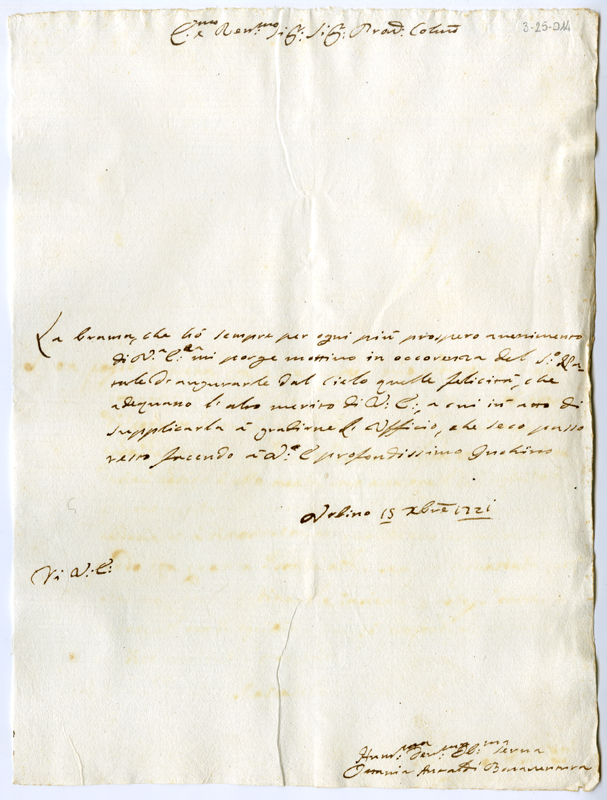 3-25-014
E.mo e Rev.mo Sig.r Sig.r Pron. Colmo
La brama, che hò sempre per ogni più prospero avenimento
di V.a E.za mi porge mottivo in occorenza del S.o Na
tale di augurarle dal cielo quelle felicità, che
adequano l'alto merito di V: E:, a cui in atto di
supplicarla à gradirne l'Ufficio, che seco passo
resto facendo à V.a E profondissimo Inchino
Urbino 15 Xbre 1721
Di V: E:
Hum.ma Dev.ma Ob.ma Serva
Bonaventura